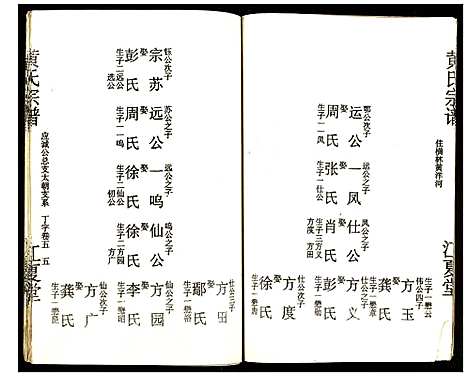 黄氏宗谱
住横林黄洋河
江夏堂
鄂公次子
运公
娶
周氏
生子一凤
运公之子
一凤
娶
张氏
生子一仕公
凤公之子
仕公
娶
肖氏
生子三方义
方度
方田
仕公四子
方玉
娶
龚氏
生子一懋云
仕公之子
方义
娶
彭氏
仕公次子
方度
娶
徐氏
生子一懋
黄氏宗谱
应诚公总支太朝支系
丁字卷五
五
江夏堂
钰公次子
宗苏
娶
彭氏
生子二远公
选公
苏公之子
远公
娶
周氏
生子一一鸣
远公之子
一鸣
娶
徐氏
生子二仙公
鸣公之子
仙公
娶
徐氏
生子二方园
方广
仕公三子
方田
娶
鄢氏
生子一懋裕
仙公之子
方园
娶
李氏
生子一懋昭
仙公次子
方广
娶
龚氏
生子一懋